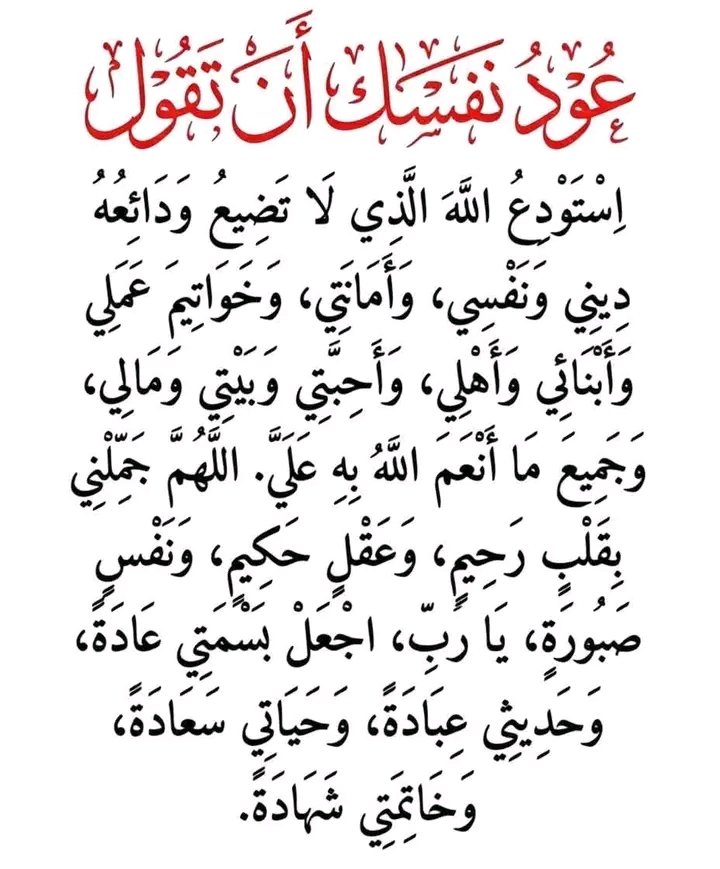 عُوْدُ نَفَسَِك أَنَ ْتَقُوْل
اِسْتَوْدِعُ اللَّهَ الَّذِي لَا تَضِيعُ وَدَائِعُهُ
دِينِي وَنَفْسِي، وَأَمَانَتِي، وَخَوَاتِيمَ عَمَلِي
وَأَبْنَائِي وَأَهْلِي، وَأَحِبَّتِي وَبَيْتِي وَمَالِي،
وَجَمِيعَ مَا أَنْعَمَ اللَّهُ بِهِ عَلَيَّ. اللَّهُمَّ جَمِّلْنِي
بِقَلْبٍ رَحِيمٍ، وَعَقْلٍ حَكِيمٍ، وَنَفْسٍ
صَبُورَةٍ، يَا رَبِّ، اجْعَلْ بَسْمَتِي عَادَةً،
وَحَدِيثِي عِبَادَةً، وَحَيَاتِي سَعَادَةً،
وَخَاتِمَتِي شَهَادَةً.